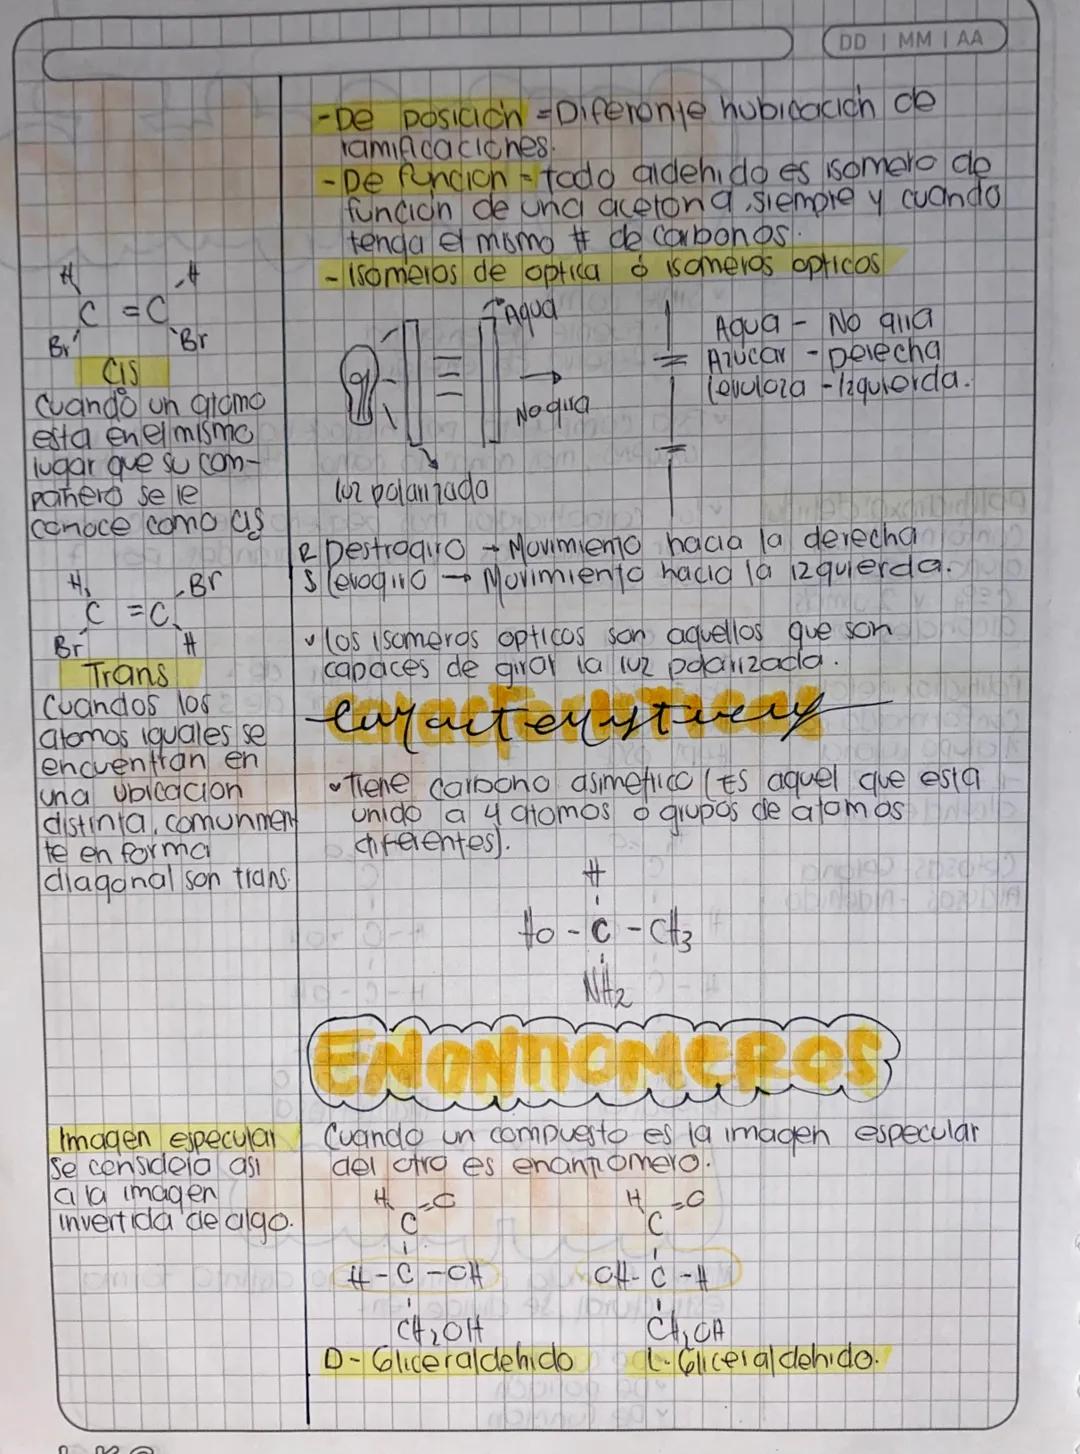 DD | MM | AA
-De posición = Diferente hubicación de
ramificaciones.
-De función - todo aldehido es isomero de
función de una acetona, siempre y cuando
tenga el mismo # de carbonos.
- Isomeros de optica ó isomeros opticos
H H
C = C
Br Br
Cis
Cuando un atomo
esta en el mismo
lugar que su com-
pañero se le
conoce como cis
H Br
C = C
Br H
Trans
Cuandos los
atomos iguales se
encuentran en
una ubicacion
distinta, comunmen
te en forma
diagonal son trans.
Agua
No gira
luz polarizada
Agua - No gira
Azucar - Derecha
Levuloza - Izquierda.
R Destrogiro → Movimiento hacia la derecha
S Levogiro → Movimiento hacia la izquierda.
Los isomeros opticos son aquellos que son
capaces de girar la luz polarizada.
Caracteristicas
Tiene carbono asimetico (Es aquel que esta
unido a 4 atomos o grupos de atomos
diferentes).
H
HO - C - CH3
NH2
ENANTIOMEROS
Imagen especular
se considera asi
a la imagen
invertida de algo.
Cuando un compuesto es la imagen especular
del otro es enantiomero.
H =O
C
H - C - OH
CH2OH
D - Gliceraldehido
H =O
C
OH - C - H
CH2OH
L - Gliceraldehido.